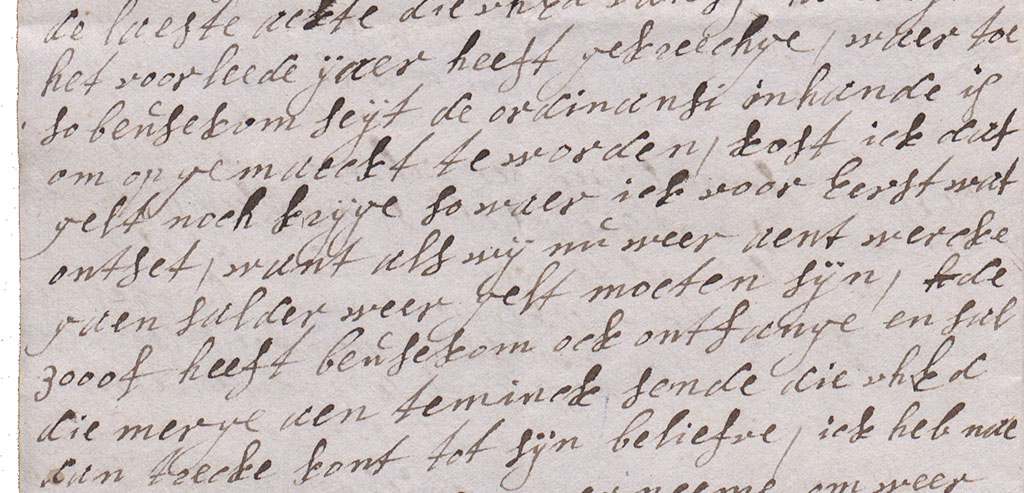 de laeste ackte die vhEd
het voorleede ijaer heeft gekreechge, waer toe
so beusekom seijt de ordinansi in hande is
om op gemaeckt te worden, kost ick dat
gelt noch krijge so waer ick voor Eerst wat
ontset, want als wij nu weer aent wercke
gaen salder weer gelt moeten sijn, de
3000f heeft beusekom ock ontfange en sal
die merge aen teminck sende die vhEd
dan trecke kont tot sijn beliefve, ick heb nae
neeme om weer